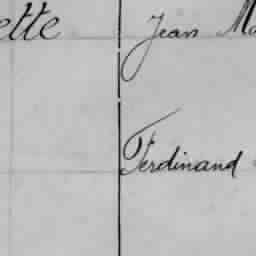 ette Jean Ma
Ferdinand